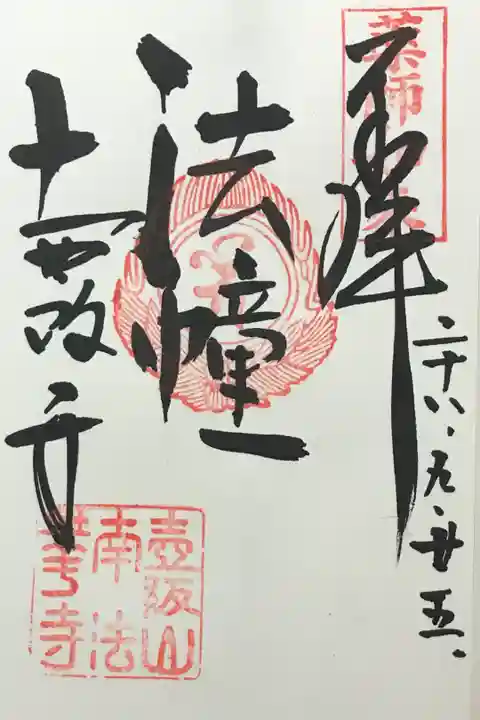 薬師如来
奉拝
二十八、九、廿五、
法幢
壺阪寺
壺阪山
南法
華寺